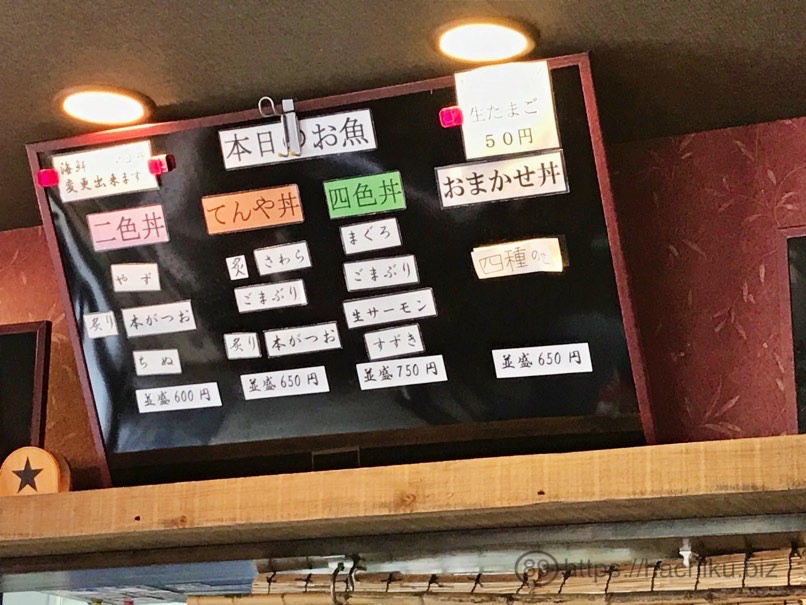 本日のお魚
生たまご
50円
海鮮
変更出来ます
二色丼
やず
炙り 本がつお
ちぬ
並盛600円
てんや丼
炙 さわら
ごまぶり
炙り 本がつお
並盛650円
四色丼
まぐろ
ごまぶり
生サーモン
すずき
並盛750円
おまかせ丼
四種の
並盛650円
https://hachiku.biz